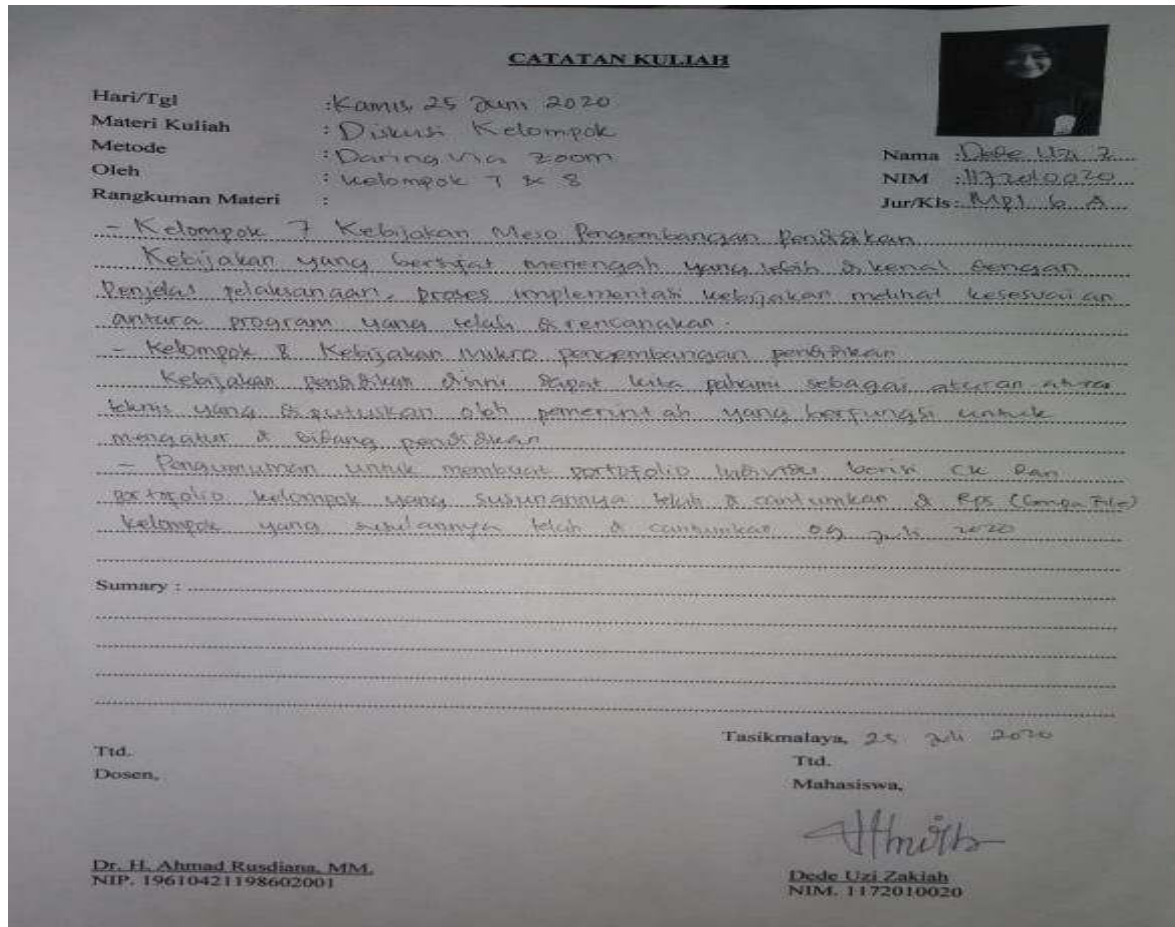 CATATAN KULIAH
Hari/Tgl : Kamis, 25 Juni 2020
Materi Kuliah : Diskusi Kelompok
Metode : Daring via zoom
Oleh : Kelompok 7 & 8
Rangkuman Materi :
Nama : Dede Uzi Z
NIM : 1172010020
Jur/Kls : MPI 6 A
- Kelompok 7 Kebijakan Meso Pengembangan Pendidikan
Kebijakan yang bersifat menengah yang lebih dikenal dengan
Penjelas pelaksanaan. proses implementasi kebijakan melihat kesesuaian
antara program yang telah direncanakan.
- Kelompok 8 Kebijakan Mikro pengembangan pendidikan
Kebijakan pendidikan disini dapat kita pahami sebagai aturan
teknis yang diputuskan oleh pemerintah yang berfungsi untuk
mengatur di bidang pendidikan
- Pengumuman untuk membuat portofolio individu berisi CK dan
portofolio kelompok yang susunannya telah di cantumkan di RPS
Kelompok yang telah di cantumkan 09 juli 2020
Sumary :
Tasikmalaya, 25 juli 2020
Ttd.
Dosen,
Ttd.
Mahasiswa,
Dr. H. Ahmad Rusdiana, MM.
NIP. 19610421198602001
Dede Uzi Zakiah
NIM. 1172010020